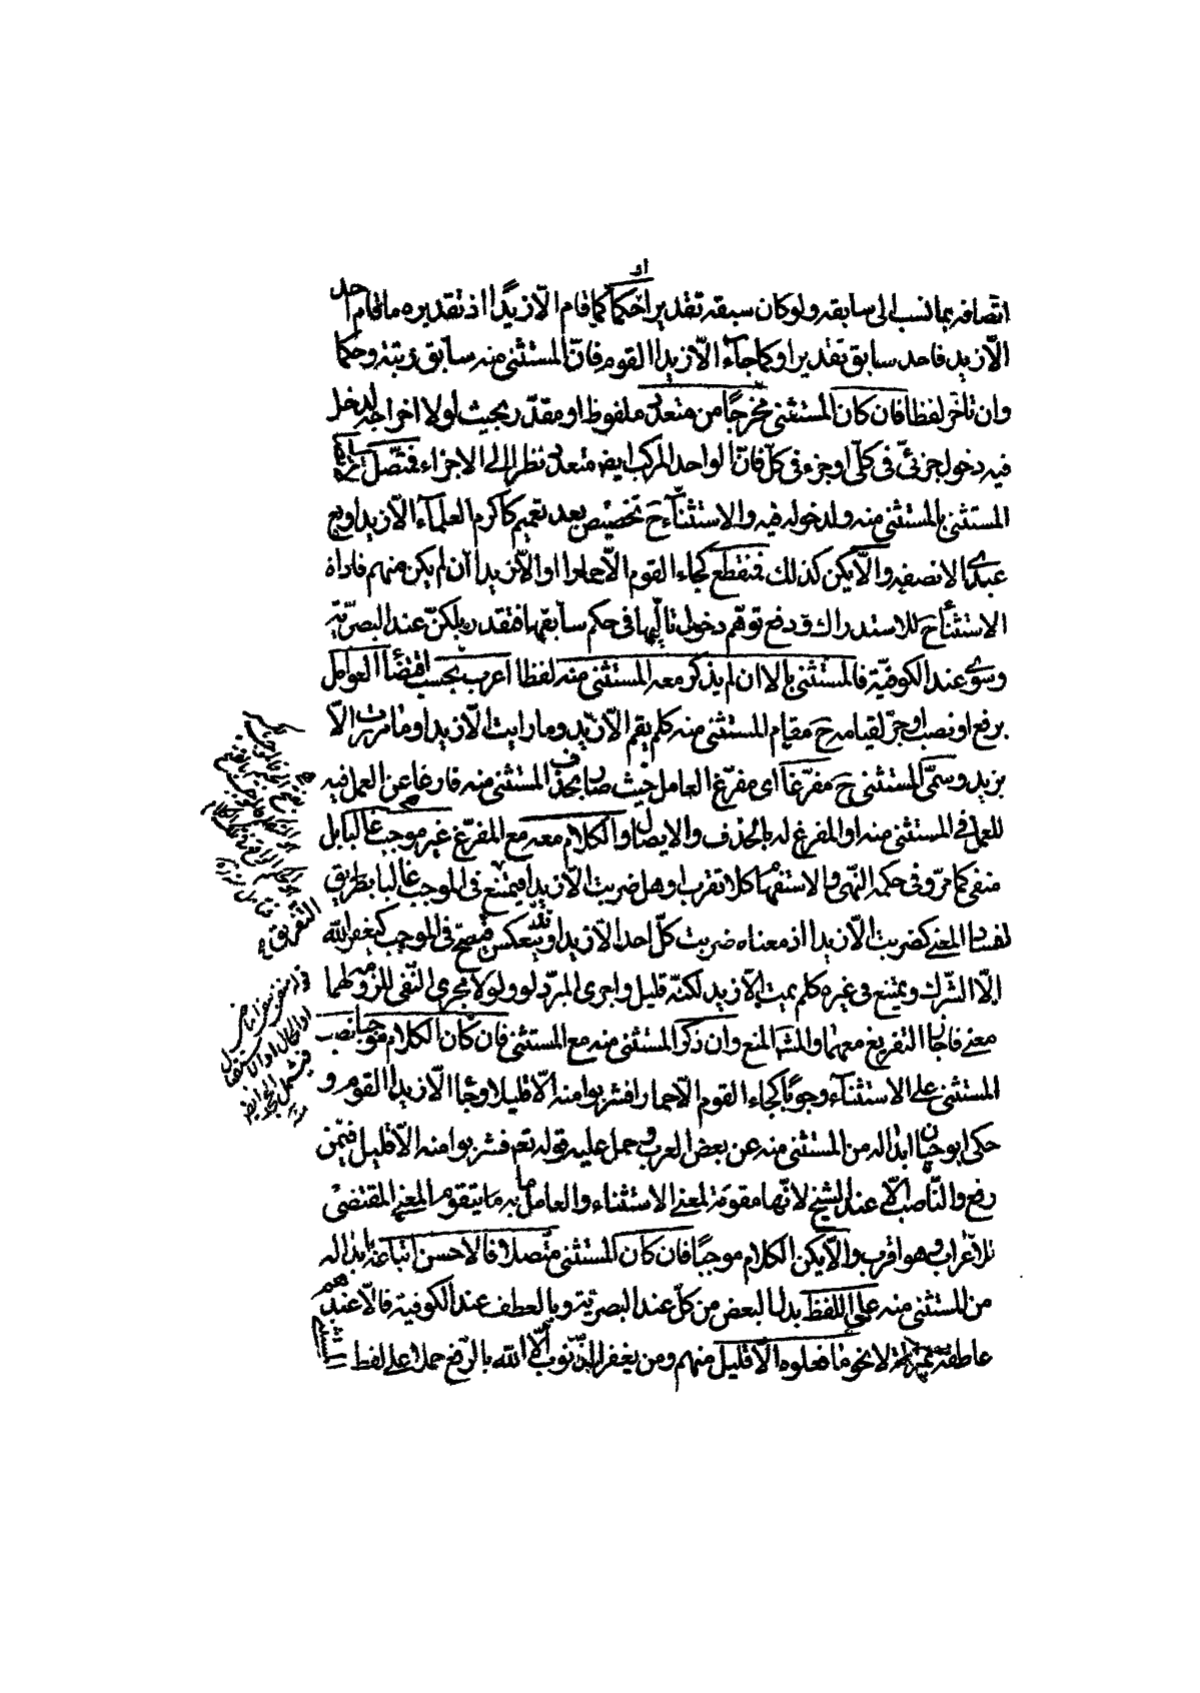 اتصافه بما نسب الى سابقه ولو كان سبقه تقديرا او حكما كما قام الّا زيدا اذ تقديره ما قام احد
الّا زيد فاحد سابق تقديرا وكما جآء الّا زيدا القوم فانّ المستثنى منه سابق رتبة وحكما
وان تاخّر لفظا فان كان المستثنى مخرجًا من متعدّد ملفوظ او مقدّر بحيث لولا اخراجه لدخل
فيه دخول جزئىّ فى كلّى او جزء فى كلّ فانّ الواحد المركب ايضا متعدد نظرا الى الاجزاء فمتّصل
المستثنى بالمستثنى منه ولدخوله فيه والاستثنآء ح تخصيص بعد تعميم كاكرم العلمآء الّا زيدا وبع
عبدى الا نصفه والّا يكن كذلك فمنقطع كجاء القوم الّا حمارا او الّا زيدا ان لم يكن منهم فاداة
الاستثناء ح للاستدراك ودفع توهّم دخول تاليها فى حكم سابقها فتقدر بلكنّ عند البصريّة
وسوى عند الكوفيّة فالمستثنى بالا ان لم يذكر معه المستثنى منه لفظا اعرب بحسب اقتضآء العوامل
برفع او نصب او جرّ لقيامه ح مقام المستثنى منه كلم يقم الّا زيد وما رايت الّا زيدا وما مررت الّا
بزيد وسمّى المستثنى ح مفرّغا اى مفرّغ العامل حيث صار بحذف المستثنى منه فارغا عن العمل فيه
للعمل فى المستثنى منه او المفرغ له بالحذف والايصال والكلام معه مع المفرّغ غير موجب غالبا بل
منفى كما مرّ وفى حكمه النهى والاستفهام كلا تقرب او هل ضربت الّا زيدا فيمتنع فى الموجب غالبا بطريق التفريق
لفساد المعنى كضربت الّا زيدا اذ معناه ضربت كلّ احد الّا زيدا وقد ينعكس فيصحّ فى الموجب كيغفر الله
الّا الشرك ويمتنع فى غيره كلم يمت الّا زيد لكنّه قليل واجرى المبرّد لو ولولا مجرى النّفى للزومهما
معنى فاجاز التفريغ معهما والمشهور المنع وان ذكر المستثنى منه مع المستثنى فان كان الكلام موجبا نصب
المستثنى على الاستثنآء وجوبًا كجاء القوم الّا حمارا فشربوا منه الّا قليلا وجاء الّا زيدا القوم و
حكى ابو حيّان ابداله من المستثنى منه عن بعض العرب وحمل عليه قوله تعم فشربوا منه الّا قليل فيمن
رفع والنّاصب الّا عند الشيخ لانّها مقومة لمعنى الاستثناء والعامل ما به يتقوم المعنى المقتضى
للاعراب وهو اقرب والّا يكن الكلام موجبًا فان كان المستثنى متّصلا فالاحسن اتباعه بابداله
من المستثنى منه على اللفظ بدل البعض من كلّ عند البصريّة وبالعطف عند الكوفية فالّا عندهم
عاطفة بمنزلة لا نحو ما فعلوه الّا قليل منهم ومن يغفر الذّنوب الّا الله بالرّفع حملا على لفظ